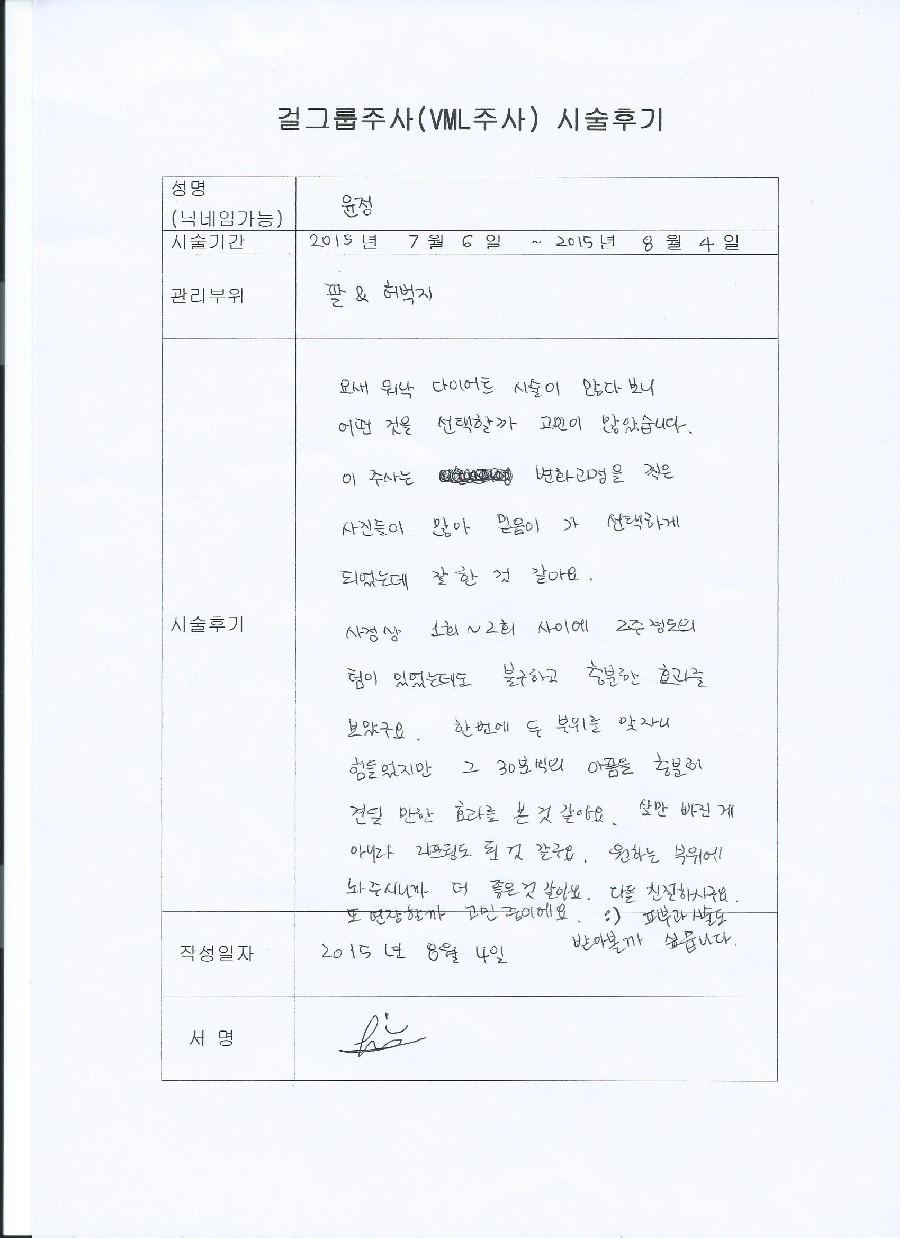 걸그룹주사(VML주사) 시술후기
성명
(닉네임가능)
윤정
시술기간 2015년 7월 6일 ~ 2015년 8월 4일
관리부위 팔 & 허벅지
요새 워낙 다이어트 시술이 많다보니
어떤 것을 선택할까 고민이 많았습니다.
이 주사는 변화과정을 적은
사진들이 많아 믿음이 가 선택하게
되었는데 잘 한 것 같아요.
시술후기
사정상 1회~2회 사이에 2주정도의
텀이 있었는데도 불구하고 충분한 효과를
보았구요. 한번에 두 부위를 맞자니
힘들었지만 그 30분의 아픔을 충분히
견딜 만한 효과를 본 것 같아요. 살만 빠진 게
아니라 리프팅도 된 것 같구요. 원하는 부위에
놔주시니까 더 좋은것 같아요. 다들 친절하시구요.
또 연장할까 고민중이에요. :) 피부과시술도
받아볼까 싶습니다.
작성일자 2015년 8월 4일
서 명